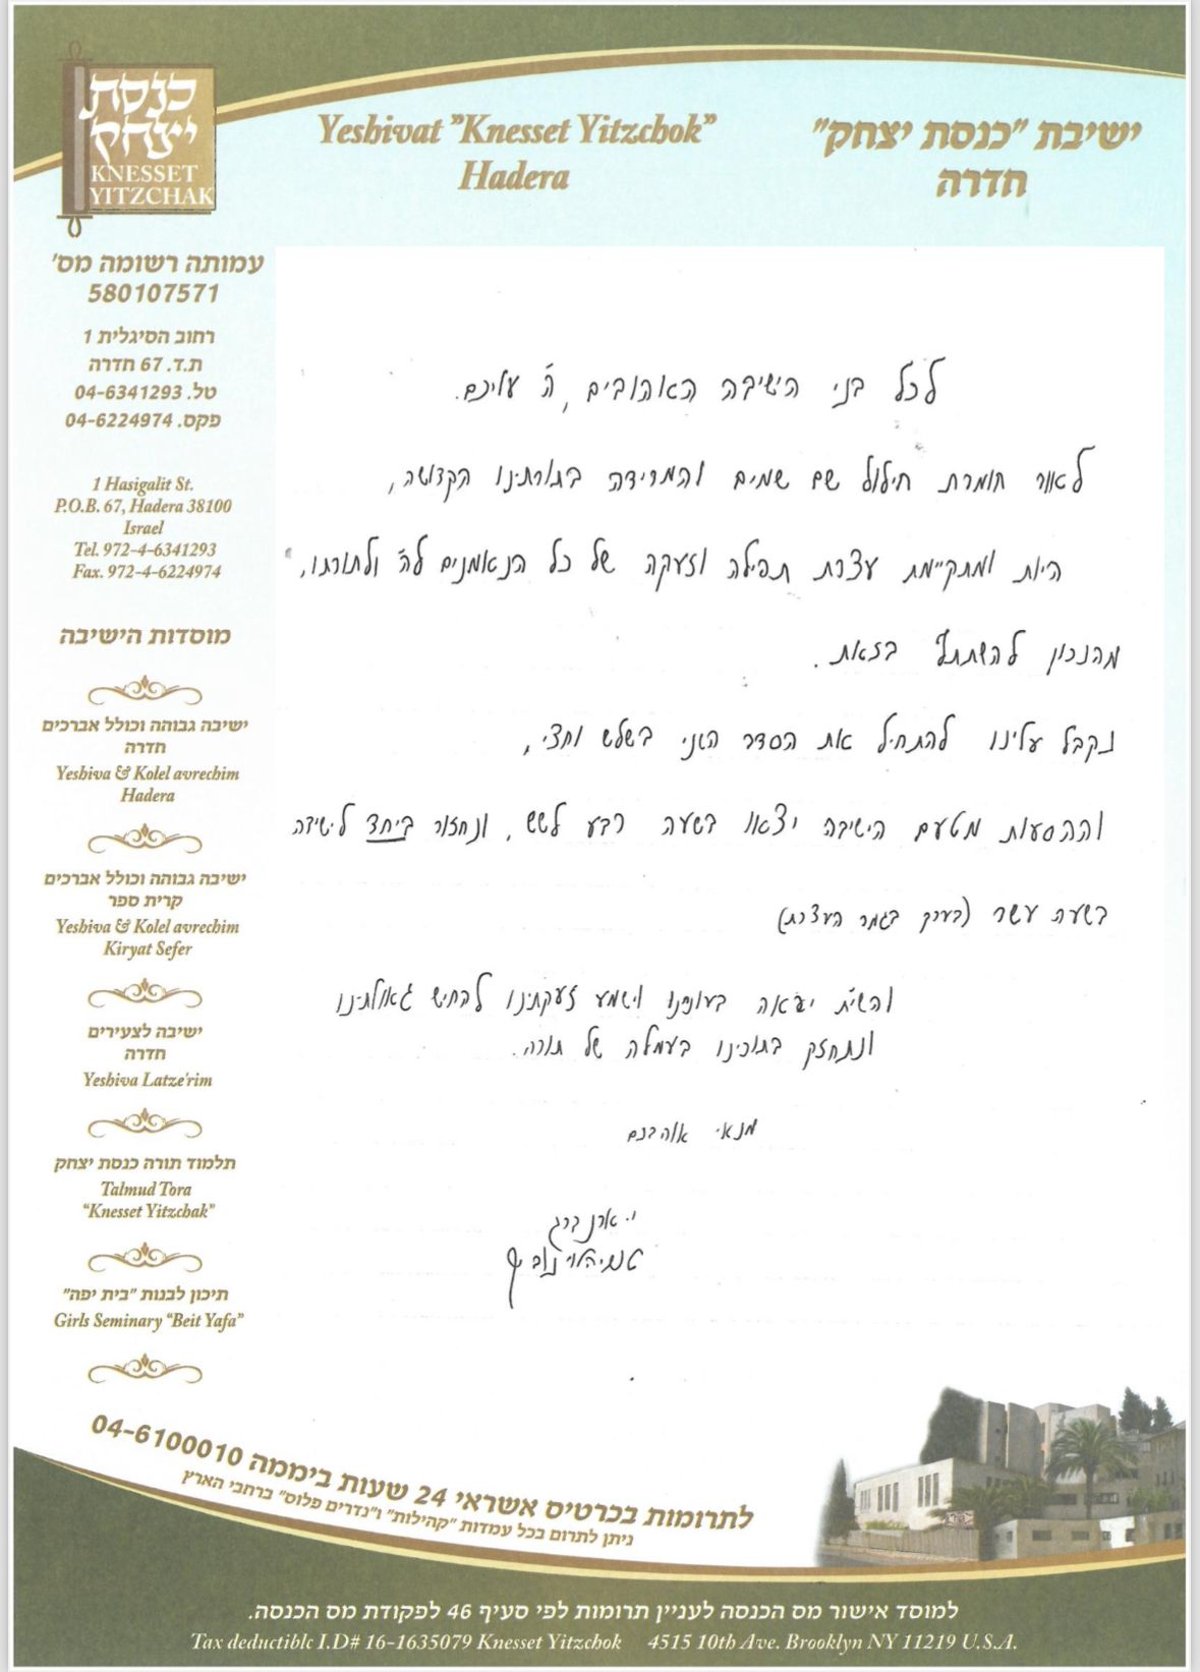 כנסת
יצחק
KNESSET
YITZCHAK
Yeshivat "Knesset Yitzchok"
Hadera
ישיבת "כנסת יצחק"
חדרה
עמותה רשומה מס'
580107571
רחוב הסיגלית 1
ת.ד. 67 חדרה
טל. 04-6341293
פקס. 04-6224974
1 Hasigalit St.
P.O.B. 67, Hadera 38100
Israel
Tel. 972-4-6341293
Fax. 972-4-6224974
מוסדות הישיבה
ישיבה גבוהה וכולל אברכים
חדרה
Yeshiva & Kolel avrechim
Hadera
ישיבה גבוהה וכולל אברכים
קרית ספר
Yeshiva & Kolel avrechim
Kiryat Sefer
ישיבה לצעירים
חדרה
Yeshiva Latze'rim
תלמוד תורה כנסת יצחק
Talmud Tora
"Knesset Yitzchak"
תיכון לבנות "בית יפה"
Girls Seminary "Beit Yafa"
לכל בני הישיבה האהובים, ה' עליכם.
לאור חומרת חילול שם שמים והמרידה בתורתינו הקדושה,
היות ומתקיימת עצרת תפילה וזעקה של כל הנאמנים לה' ולתורתו,
מהנכון להשתתף בזאת.
נקבל עלינו להתחיל את הסדר השני בשלש וחצי,
וההסעות מטעם הישיבה יצאו בשעה רבע לשש, ונחזור ביחד לישיבה
בשעה עשר (בערך בגמר העצרת)
והשי"ת יראה בעונינו וישמע זעקתינו להחיש גאולתינו
ונתחזק בתוכינו בעמלה של תורה.
מנאי אוהבכם
לתרומות בכרטיס אשראי 24 שעות ביממה 04-6100010
ניתן לתרום בכל עמדות "קהילות" ו"נדרים פלוס" ברחבי הארץ
למוסד אישור מס הכנסה לעניין תרומות לפי סעיף 46 לפקודת מס הכנסה.
Tax deductible I.D# 16-1635079 Knesset Yitzchok 4515 10th Ave. Brooklyn NY 11219 U.S.A.